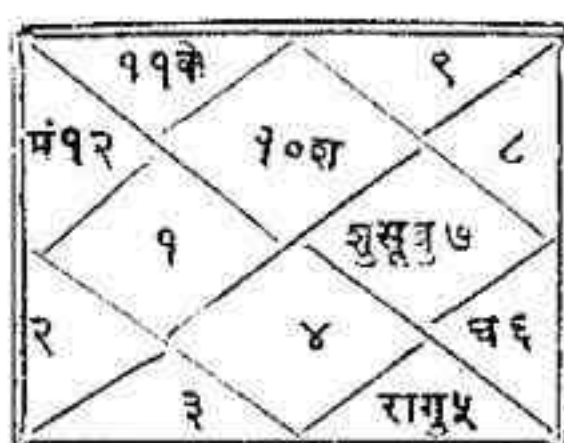 ११के
९
मं१२
१०श
८
१
शुसूबु७
२
४
चं६
३
रागु५